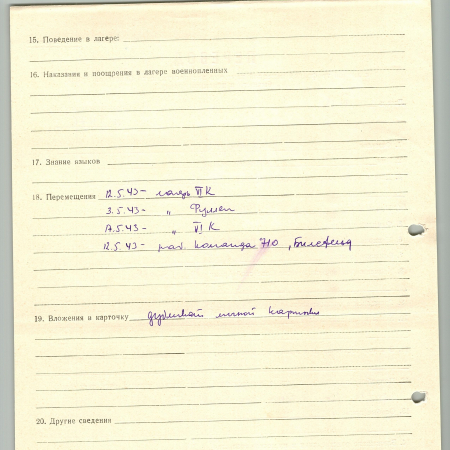 15. Поведение в лагере:
16. Наказания и поощрения в лагере военнопленных
17. Знание языков
18. Перемещения 12.5.43 - лагерь VI К
3.5.43 - „
17.5.43 - „ VI К
12.5.43 - раб. команда 710, Билефельд
19. Вложения в карточку дубликат личной карточки
20. Другие сведения